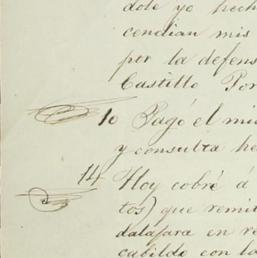 dole yo hech
cendian mis
por la defens
Castillo Por
10 Pagó el mi
y consulta he
14 Hoy cobré á
tos) que remit
dalajara en re
cabildo con la